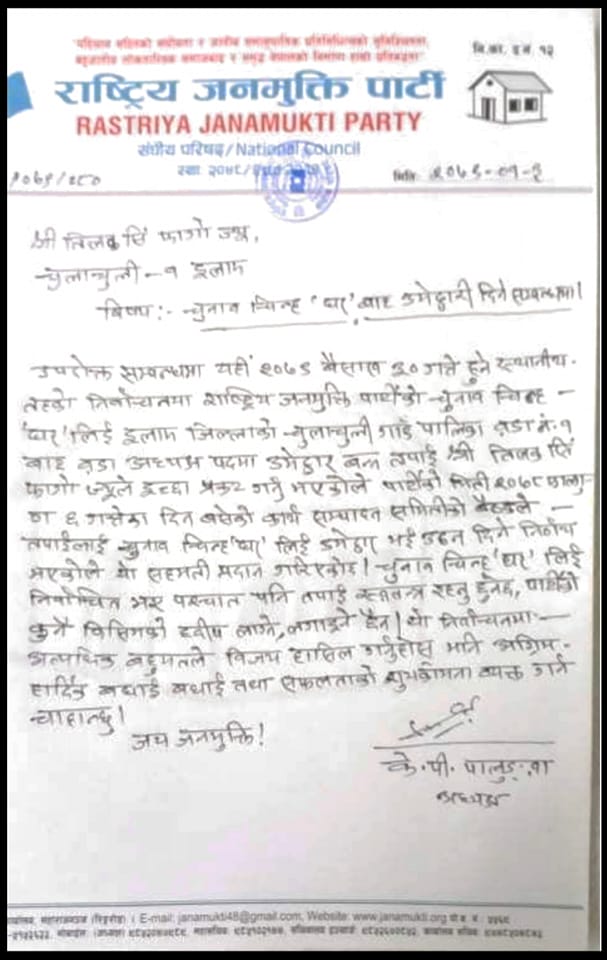 "पहिचान सहितको संघीयता र जातीय समानुपातिक प्रतिनिधित्वको सुनिश्चितता,
बहुजातीय लोकतान्त्रिक समाजवाद र समृद्ध नेपालको निर्माण हाम्रो प्रतिबद्धता"
नि.का. द.नं. १२
राष्ट्रिय जनमुक्ति पार्टी
RASTRIYA JANAMUKTI PARTY
संघीय परिषद/National Council
स्था २०४८
मिति २०७९-०१-३
श्री तिलक सिं फागो ज्यू,
चुलाचुली - १ इलाम
बिषय :- चुनाव चिन्ह 'घर' बाट उमेद्वारी दिने सम्वन्धमा।
उपरोक्त सम्वन्धमा यही २०७९ बैसाख ३० गते हुने स्थानीय
तहको निर्वाचनमा राष्ट्रिय जनमुक्ति पार्टीको चुनाव चिन्ह -
'घर' लिई इलाम जिल्लाको चुलाचुली गाउँ पालिका वडा नं. १
बाट वडा अध्यक्ष पदमा उमेद्वार बन्न तपाईं श्री तिलक सिं
फागो ज्यूले इच्छा प्रकट गर्नु भएकोले पार्टीको मिती २०७८ फाल्गु-
ण ६ गतेका दिन बसेको कार्य सम्पादन समितीको बैठकले -
तपाईंलाई चुनाव चिन्ह 'घर' लिई उमेद्वार भई उठ्न दिने निर्णय
भएकोले यो सहमती प्रदान गरिएकोछ। चुनाव चिन्ह 'घर' लिई
निर्वाचित भए पश्चात पनि तपाईं स्वतन्त्र रहनु हुनेछ, पार्टीको
कुनै किसिमको ह्वीप लाग्ने, लगाइने छैन। यो निर्वाचनमा -
अत्यधिक बहुमतले विजय हासिल गर्नुहोस् भनि अग्रिम -
हार्दिक बधाई बधाई तथा सफलताको शुभकामना व्यक्त गर्न
चाहान्छु।
जय जनमुक्ति!
के. पी. पालुङ्वा
अध्यक्ष
महाराजगञ्ज । E-mail: janamukti48@gmail.com, Website: www.janamukti.org